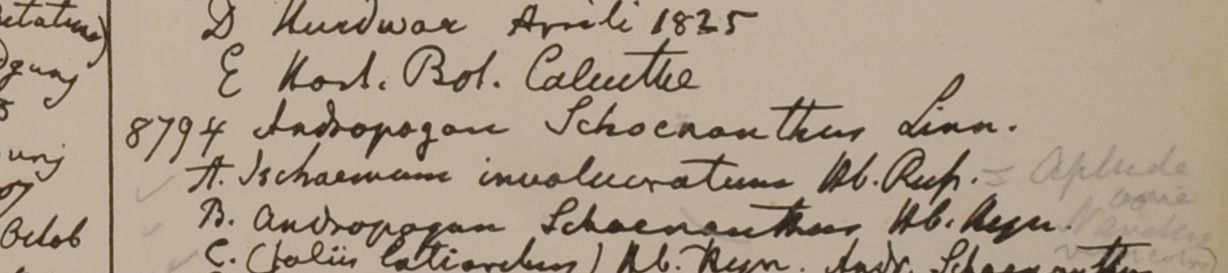 D Hurdwar Aprili 1825
E Hort. Bot. Calcutta
8794 Andropogon Schoenanthus Linn.
A. Ischaemum involucratum Hb. Rup. = Apluda
B. Andropogon Schoenanthus Hb. Heyn.
C. (foliis latioribus) Hb. Heyn. Andr. Schoenanth
Octob